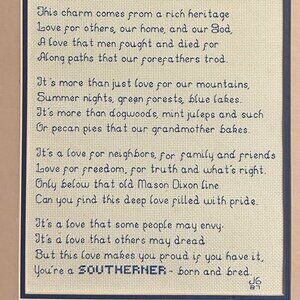 This charm comes from a rich heritage
Love for others, our home, and our God,
A love that men fought and died for
Along paths that our forefathers trod.
It's more than just love for our mountains,
Summer nights, green forests, blue lakes.
It's more than dogwoods, mint juleps and such
Or pecan pies that our grandmother bakes.
It's a love for neighbors, for family and friends
Love for freedom, for truth and what's right.
Only below that old Mason Dixon line
Can you find this deep love filled with pride.
It's a love that some people may envy.
It's a love that others may dread
But this love makes you proud if you have it,
You're a SOUTHERNER - born and bred.
JG
87